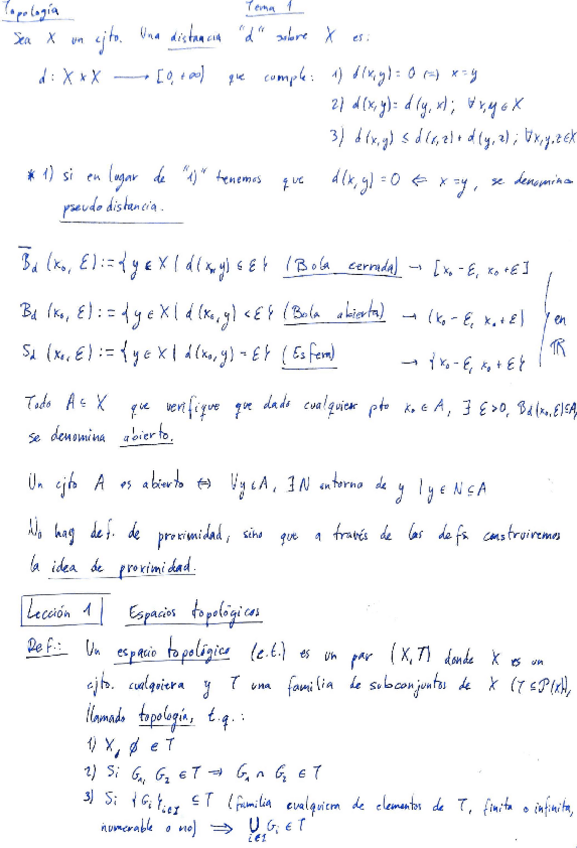 Topología Tema 1
Sea X un cjto. Una distancia "d" sobre X es:
d: X x X ⟶ [0, +∞] que cumple: 1) d(x,y) = 0 ⇔ x=y
2) d(x,y) = d(y,x); ∀x,y ∈ X
3) d(x,y) ≤ d(x,z) + d(y,z); ∀x,y,z ∈ X
* 1) si en lugar de "1)" tenemos que d(x,y) = 0 ⇐ x=y, se denomina
pseudodistancia.
B̅d (x₀, ε) := { y ∈ X | d(x₀,y) ≤ ε } (Bola cerrada) → [x₀-ε, x₀+ε]
Bd (x₀, ε) := { y ∈ X | d(x₀,y) < ε } (Bola abierta) → (x₀-ε, x₀+ε)
Sd (x₀, ε) := { y ∈ X | d(x₀,y) = ε } (Esfera) → { x₀-ε, x₀+ε }
en ℝ
Todo A ⊆ X que verifique que dado cualquier pto x₀ ∈ A, ∃ ε>0, Bd(x₀,ε) ⊆ A,
se denomina abierto.
Un cjto A es abierto ⇔ ∀y ∈ A, ∃N entorno de y | y ∈ N ⊆ A
No hay def. de proximidad, sino que a través de las defs construiremos
la idea de proximidad.
Lección 1 Espacios topológicos
Def.: Un espacio topológico (e.t.) es un par (X,T) donde X es un
cjto. cualquiera y T una familia de subconjuntos de X (T ⊆ P(X)),
llamado topología, t.q.:
1) X, ∅ ∈ T
2) Si G₁, G₂ ∈ T ⇒ G₁ ∩ G₂ ∈ T
3) Si {Gᵢ}ᵢ∈I ⊆ T (familia cualquiera de elementos de T, finita o infinita,
numerable o no) ⟹ ⋃ᵢ∈I Gᵢ ∈ T